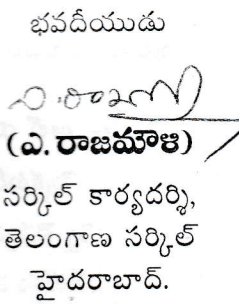 భవదీయుడు
ఎ. రాజమౌళి
(ఎ. రాజమౌళి)
సర్కిల్ కార్యదర్శి,
తెలంగాణ సర్కిల్
హైదరాబాద్.